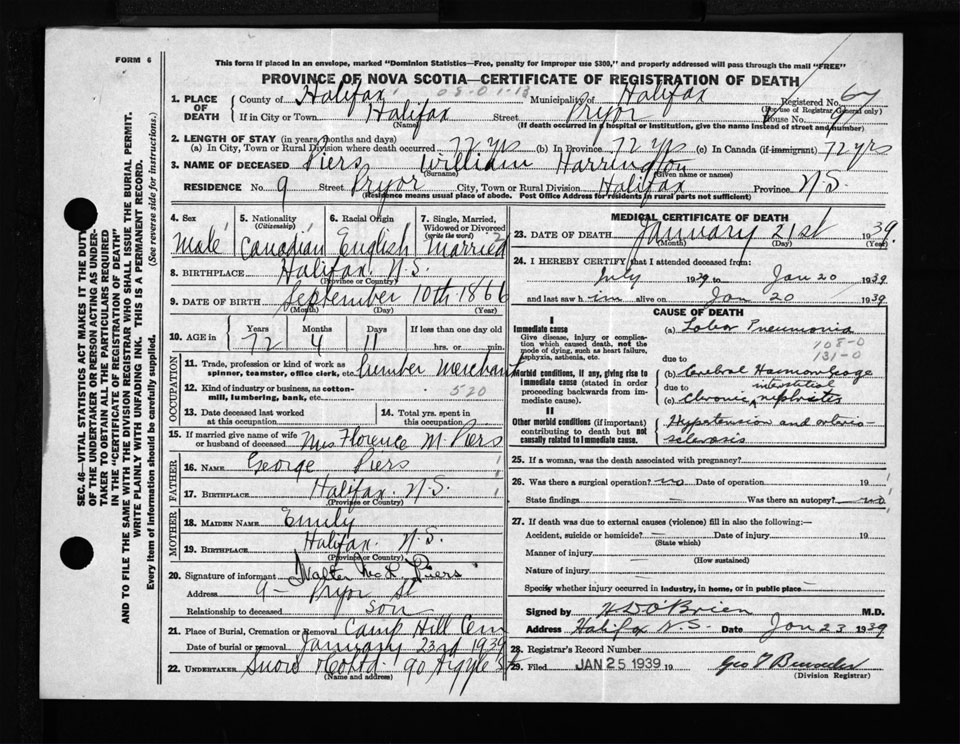 FORM 6
This form if placed in an envelope, marked "Dominion Statistics—Free, penalty for improper use $300," and properly addressed will pass through the mail "FREE"
PROVINCE OF NOVA SCOTIA—CERTIFICATE OF REGISTRATION OF DEATH
1. PLACE OF DEATH County of Halifax Municipality of Halifax Registered No. 67
(For use of Registrar General only)
If in City or Town Halifax Street Pryor House No. 9
(Name) (If death occurred in a hospital or institution, give the name instead of street and number)
2. LENGTH OF STAY (in years, months and days)
(a) In City, Town or Rural Division where death occurred 72 yrs (b) In Province 72 yrs (c) In Canada (if immigrant) 72 yrs
3. NAME OF DECEASED Piers William Harrington
(Surname) (Given name or names)
RESIDENCE No. 9 Street Pryor City, Town or Rural Division Halifax Province N.S.
(Residence means usual place of abode. Post Office Address for residents in rural parts not sufficient)
4. Sex Male
5. Nationality (Citizenship) Canadian
6. Racial Origin English
7. Single, Married, Widowed or Divorced (write the word) Married
8. BIRTHPLACE Halifax. N.S.
(Province or Country)
9. DATE OF BIRTH September 10th 1866
(Month) (Day) (Year)
10. AGE in Years 72 Months 4 Days 11 If less than one day old hrs. or min.
OCCUPATION
11. Trade, profession or kind of work as spinner, teamster, office clerk, etc. Lumber Merchant
12. Kind of industry or business, as cotton-mill, lumbering, bank, etc. 520
13. Date deceased last worked at this occupation
14. Total yrs. spent in this occupation
15. If married give name of wife or husband of deceased Mrs Florence M. Piers
FATHER
16. NAME George Piers
17. BIRTHPLACE Halifax. N.S.
(Province or Country)
MOTHER
18. MAIDEN NAME Emily
19. BIRTHPLACE Halifax. N.S.
(Province or Country)
20. Signature of informant Walter Piers
Address 9— Pryor St
Relationship to deceased son
21. Place of Burial, Cremation or Removal Camp Hill Cem
Date of burial or removal January 23rd 1939
22. UNDERTAKER Snow & Co Ltd. 90 Argyle St
(Name and address)
MEDICAL CERTIFICATE OF DEATH
23. DATE OF DEATH January 21st 1939
(Month) (Day) (Year)
24. I HEREBY CERTIFY that I attended deceased from:
July 1929 to Jan 20 1939
and last saw him alive on Jan 20 1939
CAUSE OF DEATH
I
Immediate cause (a) Lobar Pneumonia
Give disease, injury or complication which caused death, not the mode of dying, such as heart failure, asphyxia, asthenia, etc.
108-0
131-0
due to
Morbid conditions, if any, giving rise to immediate cause (stated in order proceeding backwards from immediate cause).
(b) Cerebral Haemorrhage
due to
(c) Chronic interstitial nephritis
II
Other morbid conditions (if important) contributing to death but not causally related to immediate cause.
Hypertension and arterio-
sclerosis
25. If a woman, was the death associated with pregnancy?
26. Was there a surgical operation? no Date of operation 19
State findings — Was there an autopsy? no
27. If death was due to external causes (violence) fill in also the following:—
Accident, suicide or homicide? — Date of injury 19
(State which)
Manner of injury
(How sustained)
Nature of injury
Specify whether injury occurred in industry, in home, or in public place
Signed by H D O'Brien M.D.
Address Halifax N.S. Date Jan 23 1939
28. Registrar's Record Number
29. Filed JAN 25 1939 19
(Division Registrar)
SEC. 46—VITAL STATISTICS ACT MAKES IT THE DUTY
OF THE UNDERTAKER OR PERSON ACTING AS UNDER-
TAKER TO OBTAIN ALL THE PARTICULARS REQUIRED
IN THE "CERTIFICATE OF REGISTRATION OF DEATH"
AND TO FILE THE SAME WITH THE DIVISION REGISTRAR WHO SHALL ISSUE THE BURIAL PERMIT.
WRITE PLAINLY WITH UNFADING INK. THIS IS A PERMANENT RECORD.
Every item of information should be carefully supplied. (See reverse side for instructions.)